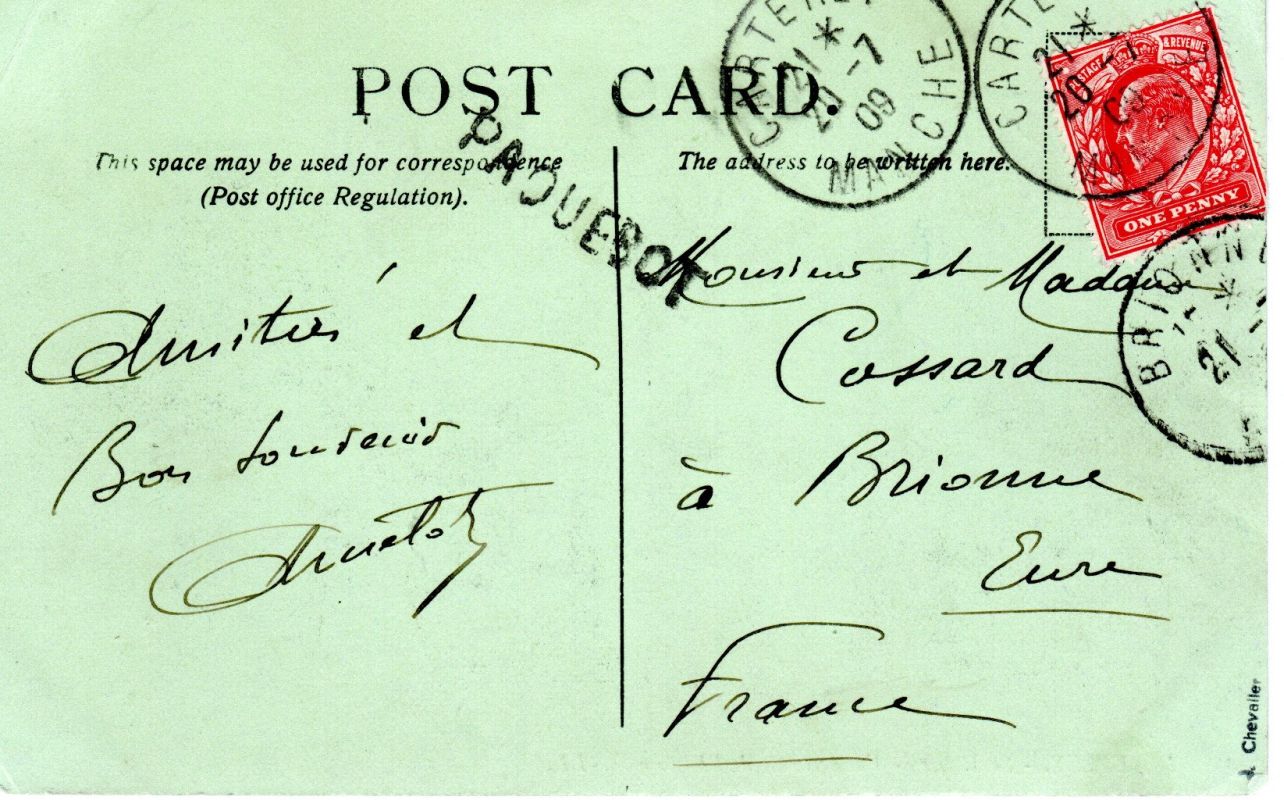 POST CARD.
This space may be used for correspondence
(Post office Regulation).
The address to be written here.
PAQUEBOT
CARTERET
21 *
20 -7
09
MANCHE
CARTE
21 *
20
MAN
POSTAGE & REVENUE
ONE PENNY
BRIONNE
*
21
Amitiés et
Bon souvenir
Monsieur et Madame
Cossard
à Brionne
Eure
France
Chevalier